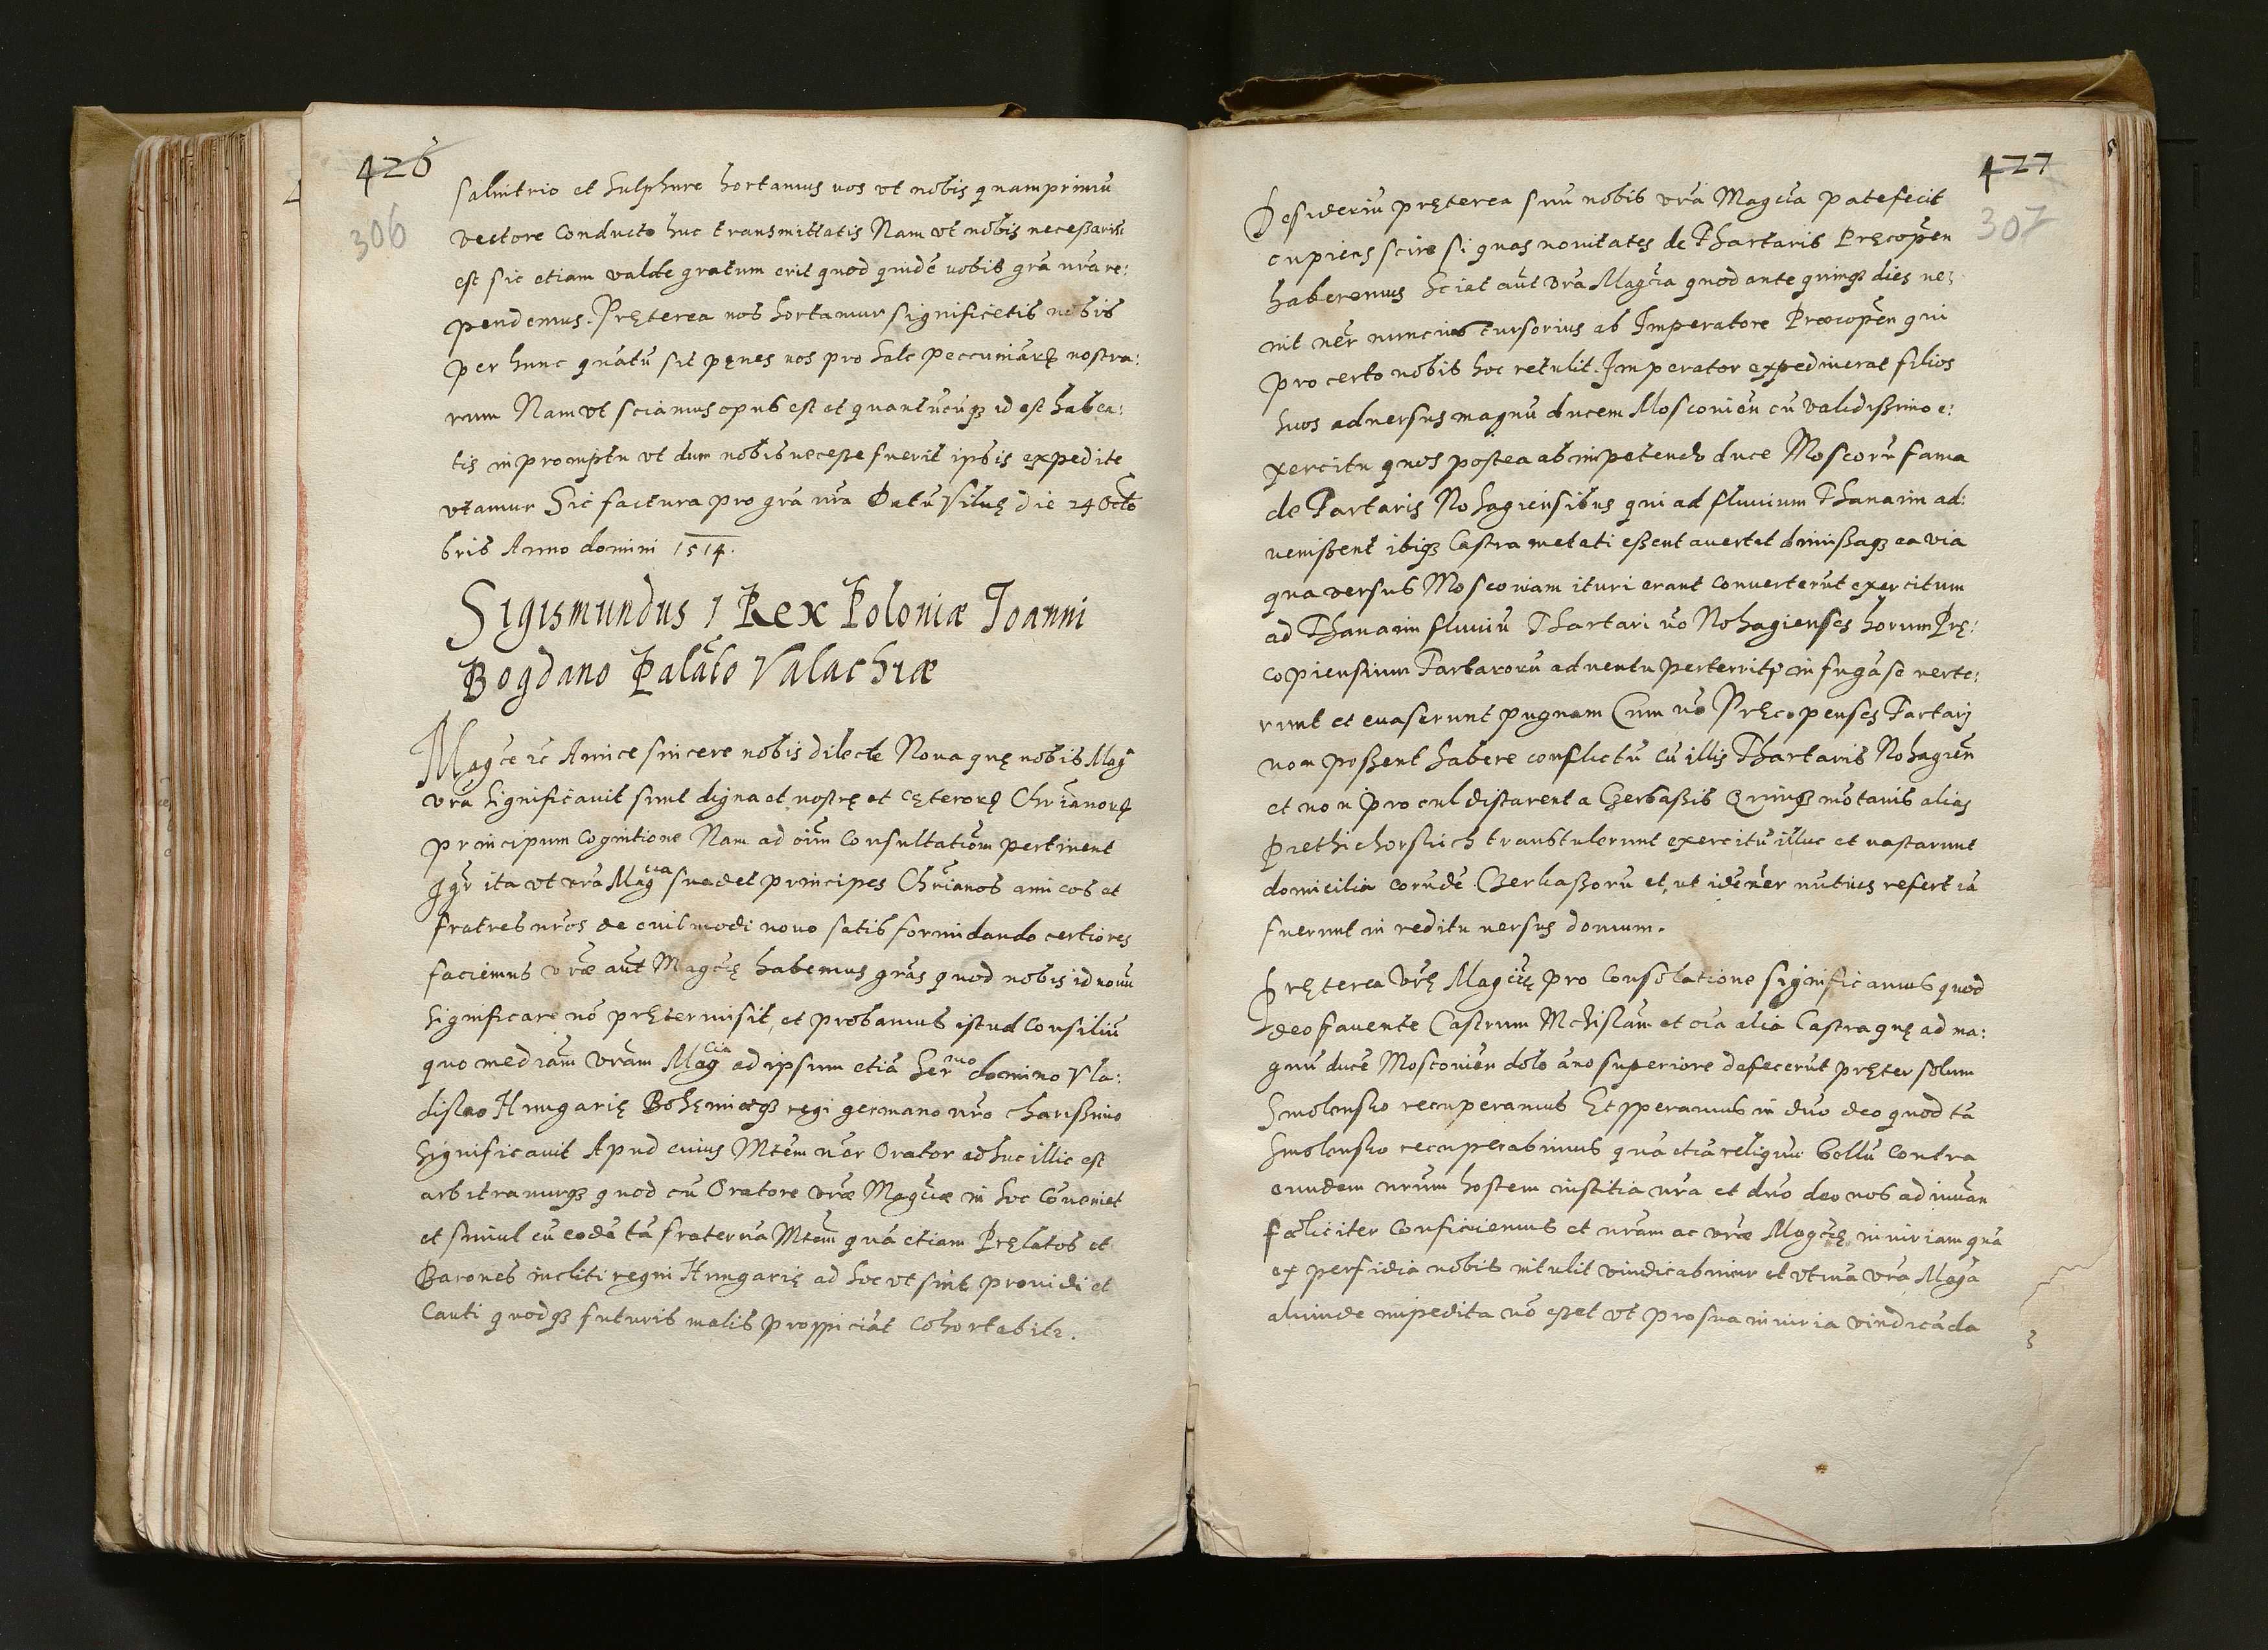 426
306
salnitrio et sulphure hortamus uos vt nobis quamprimũ
vectore conducto huc transmittatis Nam vt nobis neceßariũ
est sic etiam valde gratum erit quod quidẽ uobis grã nrã re:
pendemus. Pręterea nos hortamur significetis nobis
per hunc quãtũ sit pęnes uos pro sale peccuniarę nostra:
rum Nam vt sciamus opus est et quantũcũqз id est habea:
tis in promptu vt dum nobis neceße fuerit ipsis expedite
vtamur Sic factura pro grã nrã Datũ Vilnę die 24 Octo
bris Anno domini 1514.
Sigismundus 1 Rex Poloniæ Ioanni
Bogdano Palãto Valachiæ
Magce ic Amice sincere nobis dilecte Noua quę nobis Mag
vrã significauit sunt digna et nostrę et cęterorę Chrianorę
principum cognitione Nam ad oim consultatiom pertinent
Igr ita vt vrã Mag cia suadet principes Chrianos amicos et
fratres nros de euismodi nouo satis formidando certiores
faciemus vræ aut Magcię habemus grãs quod nobis id nouũ
significare nõ prętermisit, et probamus istud consiliũ
quo mediam vram Mag cia ad ipsum etiã Ser mo domino Vla:
dislao Hungarię Bohęmiæqз regi germano nro charißimo
significauit Apud cuius Mtem ner Orator adhuc illic est
arbitramurqз quod cũ Oratore vræ Magciæ in hoc cõueniet
et simul cũ eodẽ tã fraternã Mtem quã etiam Pręlatos et
Barones incliti regni Hungarię ad hoc vt sint prouidi et
cauti quodqз futuris malis prospiciãt cohortabitr.
427
307
Desideriũ pręterea suũ nobis vrã Magcia patefecit
cupiens scire si quas nouitates de Thartaris Pręcopen
haberemus Sciat aut vrã Magcia quod ante quinqз dies ue:
nit ner nuncius cursorius ab Imperatore Præcopen qui
pro certo nobis hoc retulit. Imperator expediuerat filios
suos aduersus magnũ ducem Mosconien cũ validißimo e:
xercitu quos postea ab impetendo duce Moscorũ fama
de Tartaris Nohagiensibus qui ad fluuium Thanaim ad:
uenißent ibiqз Castra metati eßent auertet dimißaqз ea via
qua versus Mosconiam ituri erant conuerterũt exercitum
ad Thanaim fluuiũ Thartari uo Nohagienses horum Prę:
copiensium Tartarorũ aduentu perterriti in fugã se uerte:
runt et euaserunt pugnam Cum uo Pręcopenses Tartarj
non poßent habere conflictũ cũ illis Thartaris Nohagien
et non procul distarent a Czerkaßis Quinqз mõtanis alias
Piethichorskich transtulerunt exercitũ illuc et uastarunt
domicilia eorũdẽ Czerkaßorũ et, ut idẽ ner nũtius refert iã
fuerunt in reditu uersus domum.
Pręterea Vrę Magcię pro consolatione significamus quod
deo fauente Castrum Mcislam et oia alia Castra quę ad ma:
gnũ ducẽ Mosconien dolo ãno superiore defecerũt pręter solum
Smolensko recuperamus Et speramus in dno deo quod tã
Smolensko recuperabimus quã etiã reliquũ bellũ contra
eundem nrum hostem iustitia nrã et dno deo nos adiuuan
fœliciter conficiemus et nram ac vræ Magcię iniuriam quã
ex perfidia nobis intulit vindicabimur et vtinã vrã Magã
aliunde impedita nõ eßet vt pro sua iniuria vindicãda